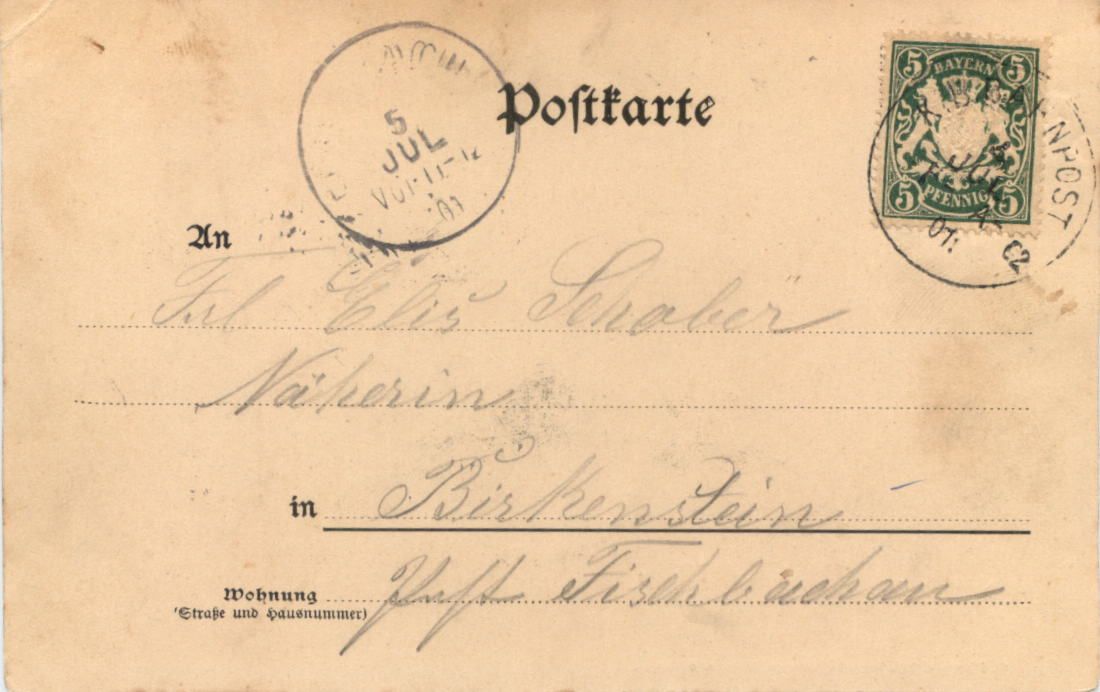 Postkarte
5
JUL
VOR 11-12
01
5 BAYERN 5
5 PFENNIG 5
BAHNPOST
JUL
01
An
Frl Elis Schober
Näherin
in Birkenstein
Post Fischbachau
Wohnung
(Straße und Hausnummer)